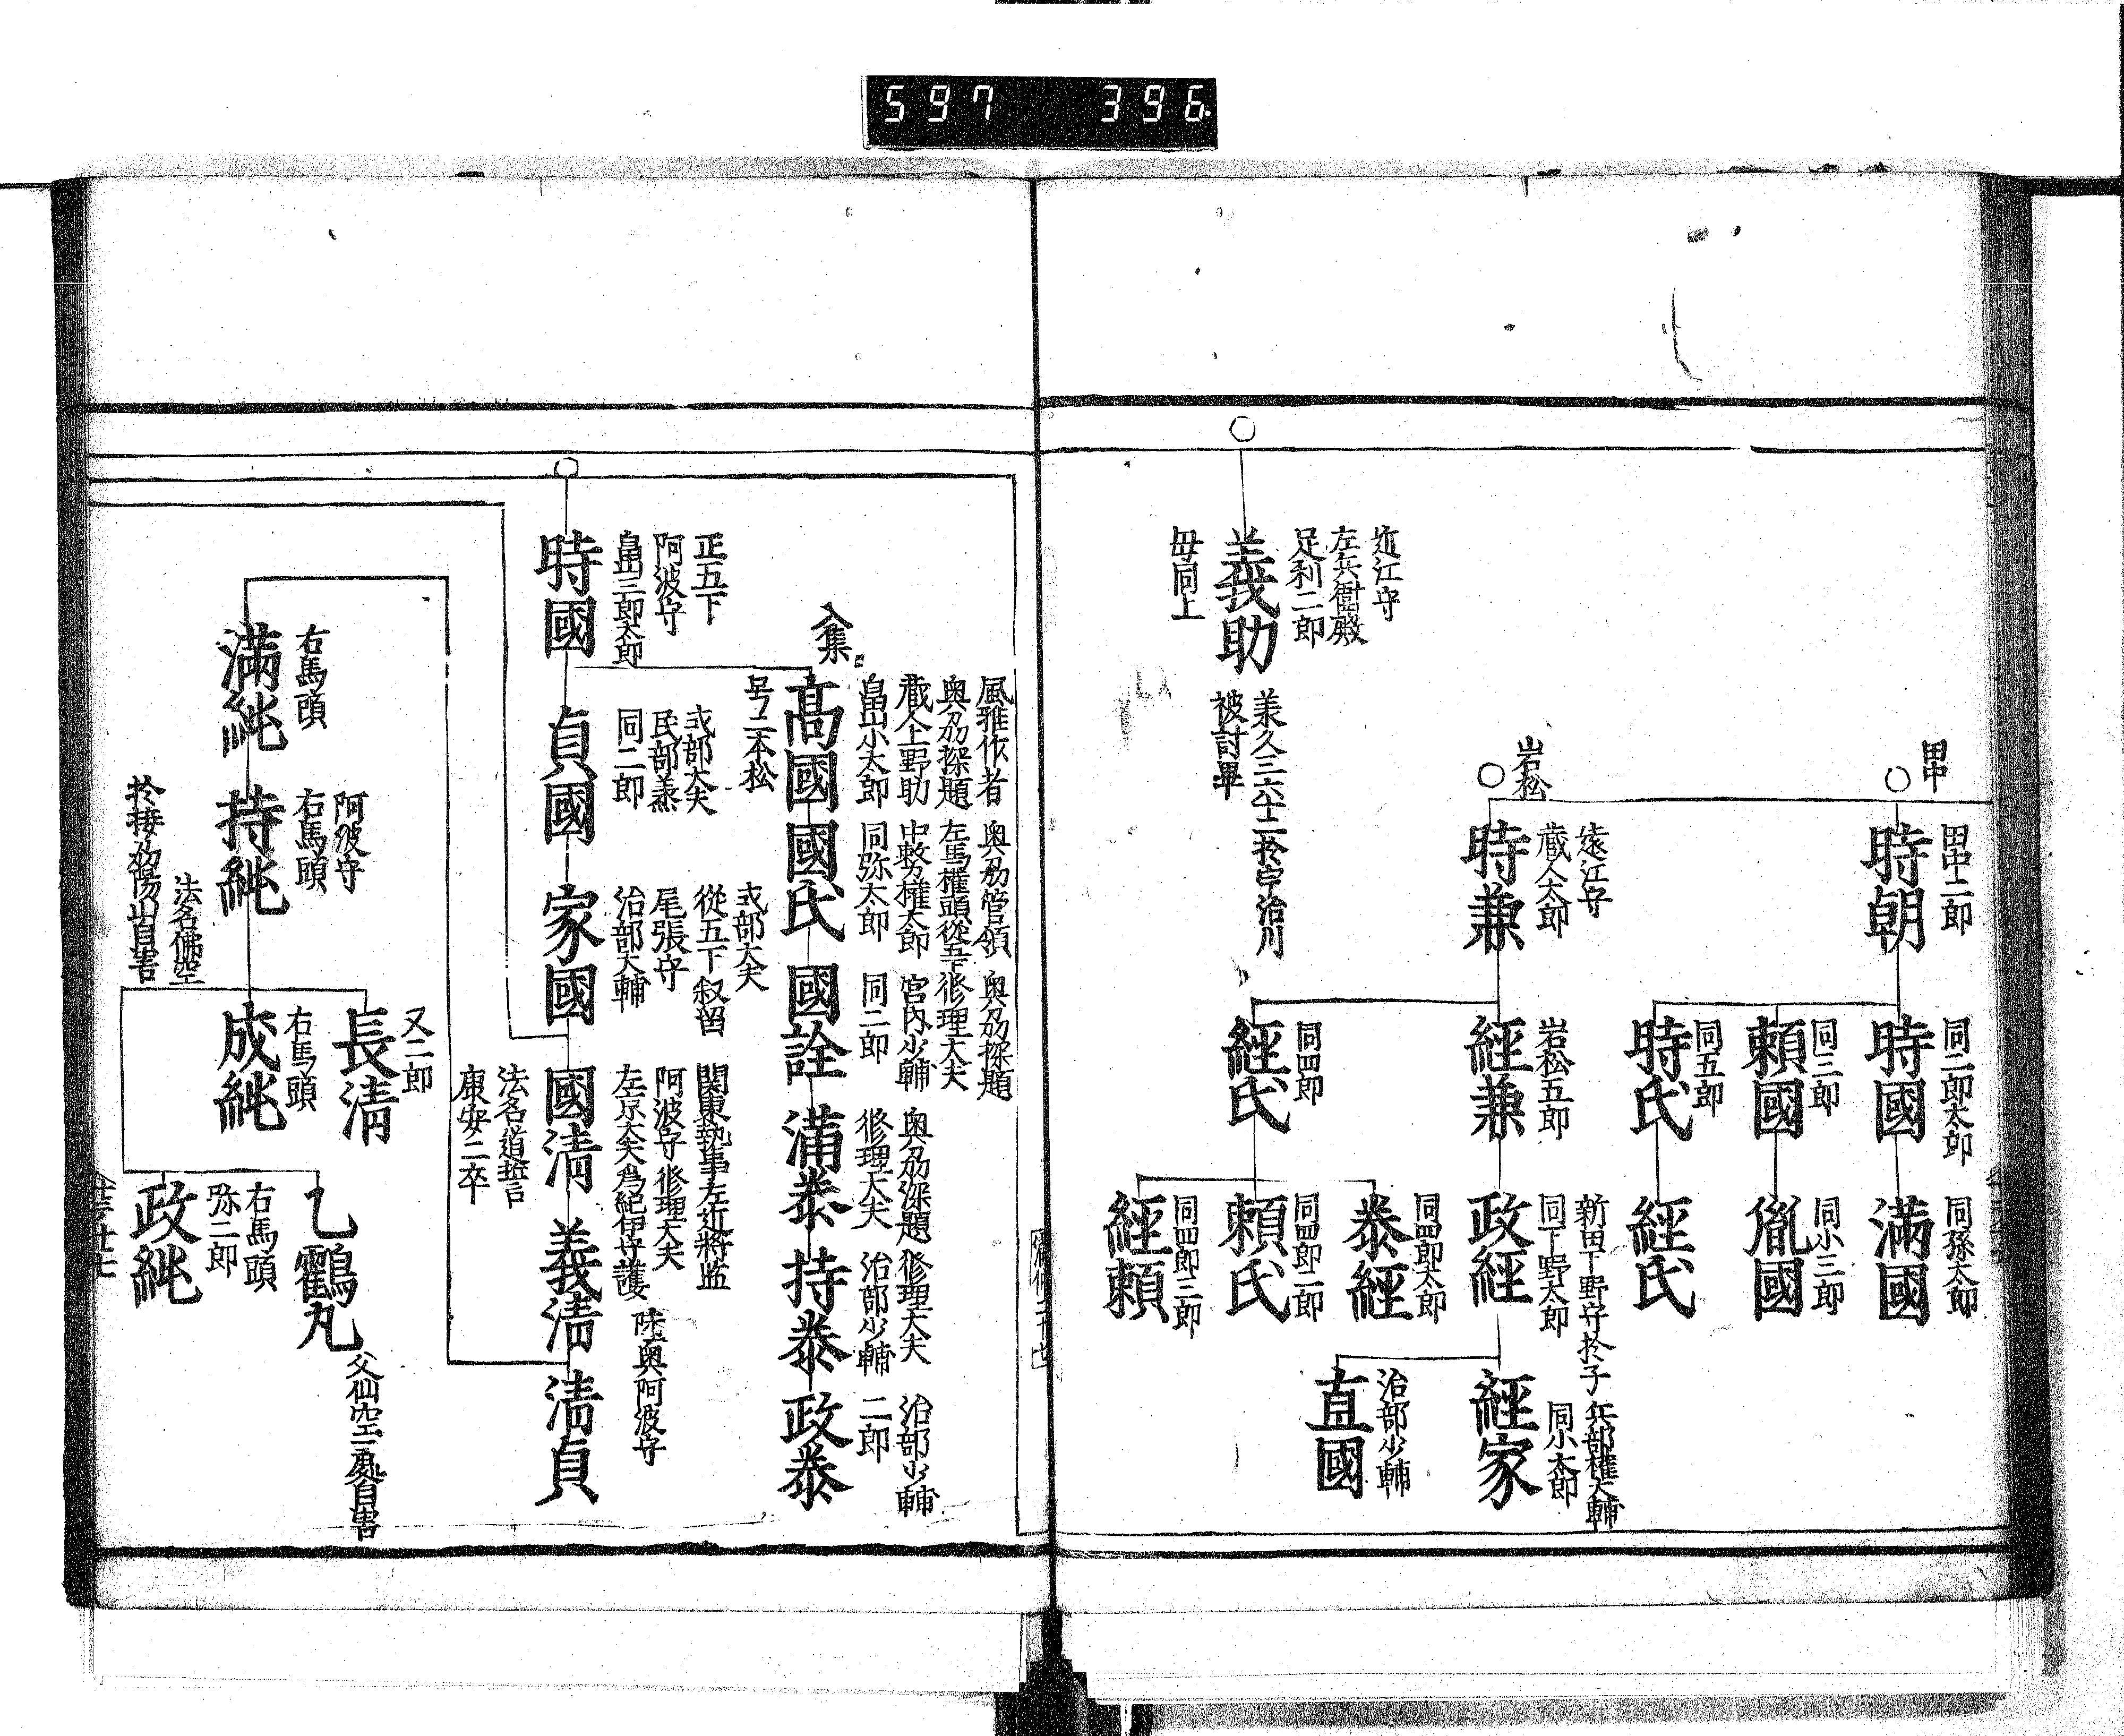 597 396
田中
田中二郎
時朝
同二郎太郎
時國
同孫太郎
滿國
同三郎
頼國
同小三郎
胤國
同五郎
時氏
經氏
岩松
遠江守
蔵人太郎
時兼
岩松五郎
經兼
新田下野守
同下野太郎
政經
兵部權大輔
同小太郎
經家
治部少輔
直國
同四郎
經氏
同四郎太郎
泰經
同四郎二郎
頼氏
同四郎三郎
經頼
近江守
左兵衛殿
足利二郎
義助
母同上
被討畢
風雅作者
奥刕探題
蔵人上野助
畠山小太郎
入集
高國
号二本松
奥刕管領
左馬權頭從五下
中務權大郎
同弥太郎
國氏
奥刕探題
修理大夫
宮内少輔
同二郎
國詮
奥刕深題
修理大夫
滿泰
修理大夫
治部少輔
持泰
治部少輔
二郎
政泰
正五下
阿波守
畠山三郎太郎
時國
式部大夫
民部丞
同二郎
貞國
式部大夫
從五下叙留
尾張守
治部大輔
家國
関東執事左近將監
阿波守修理大夫
左京大夫為紀伊守護
國清
法名道誓
康安二卒
陸奥阿波守
義清
清貞
右馬頭
滿純
阿波守
右馬頭
持純
法名佛空
又二郎
長清
右馬頭
成純
乙鶴丸
父仙空一處自害
右馬頭
弥二郎
政純